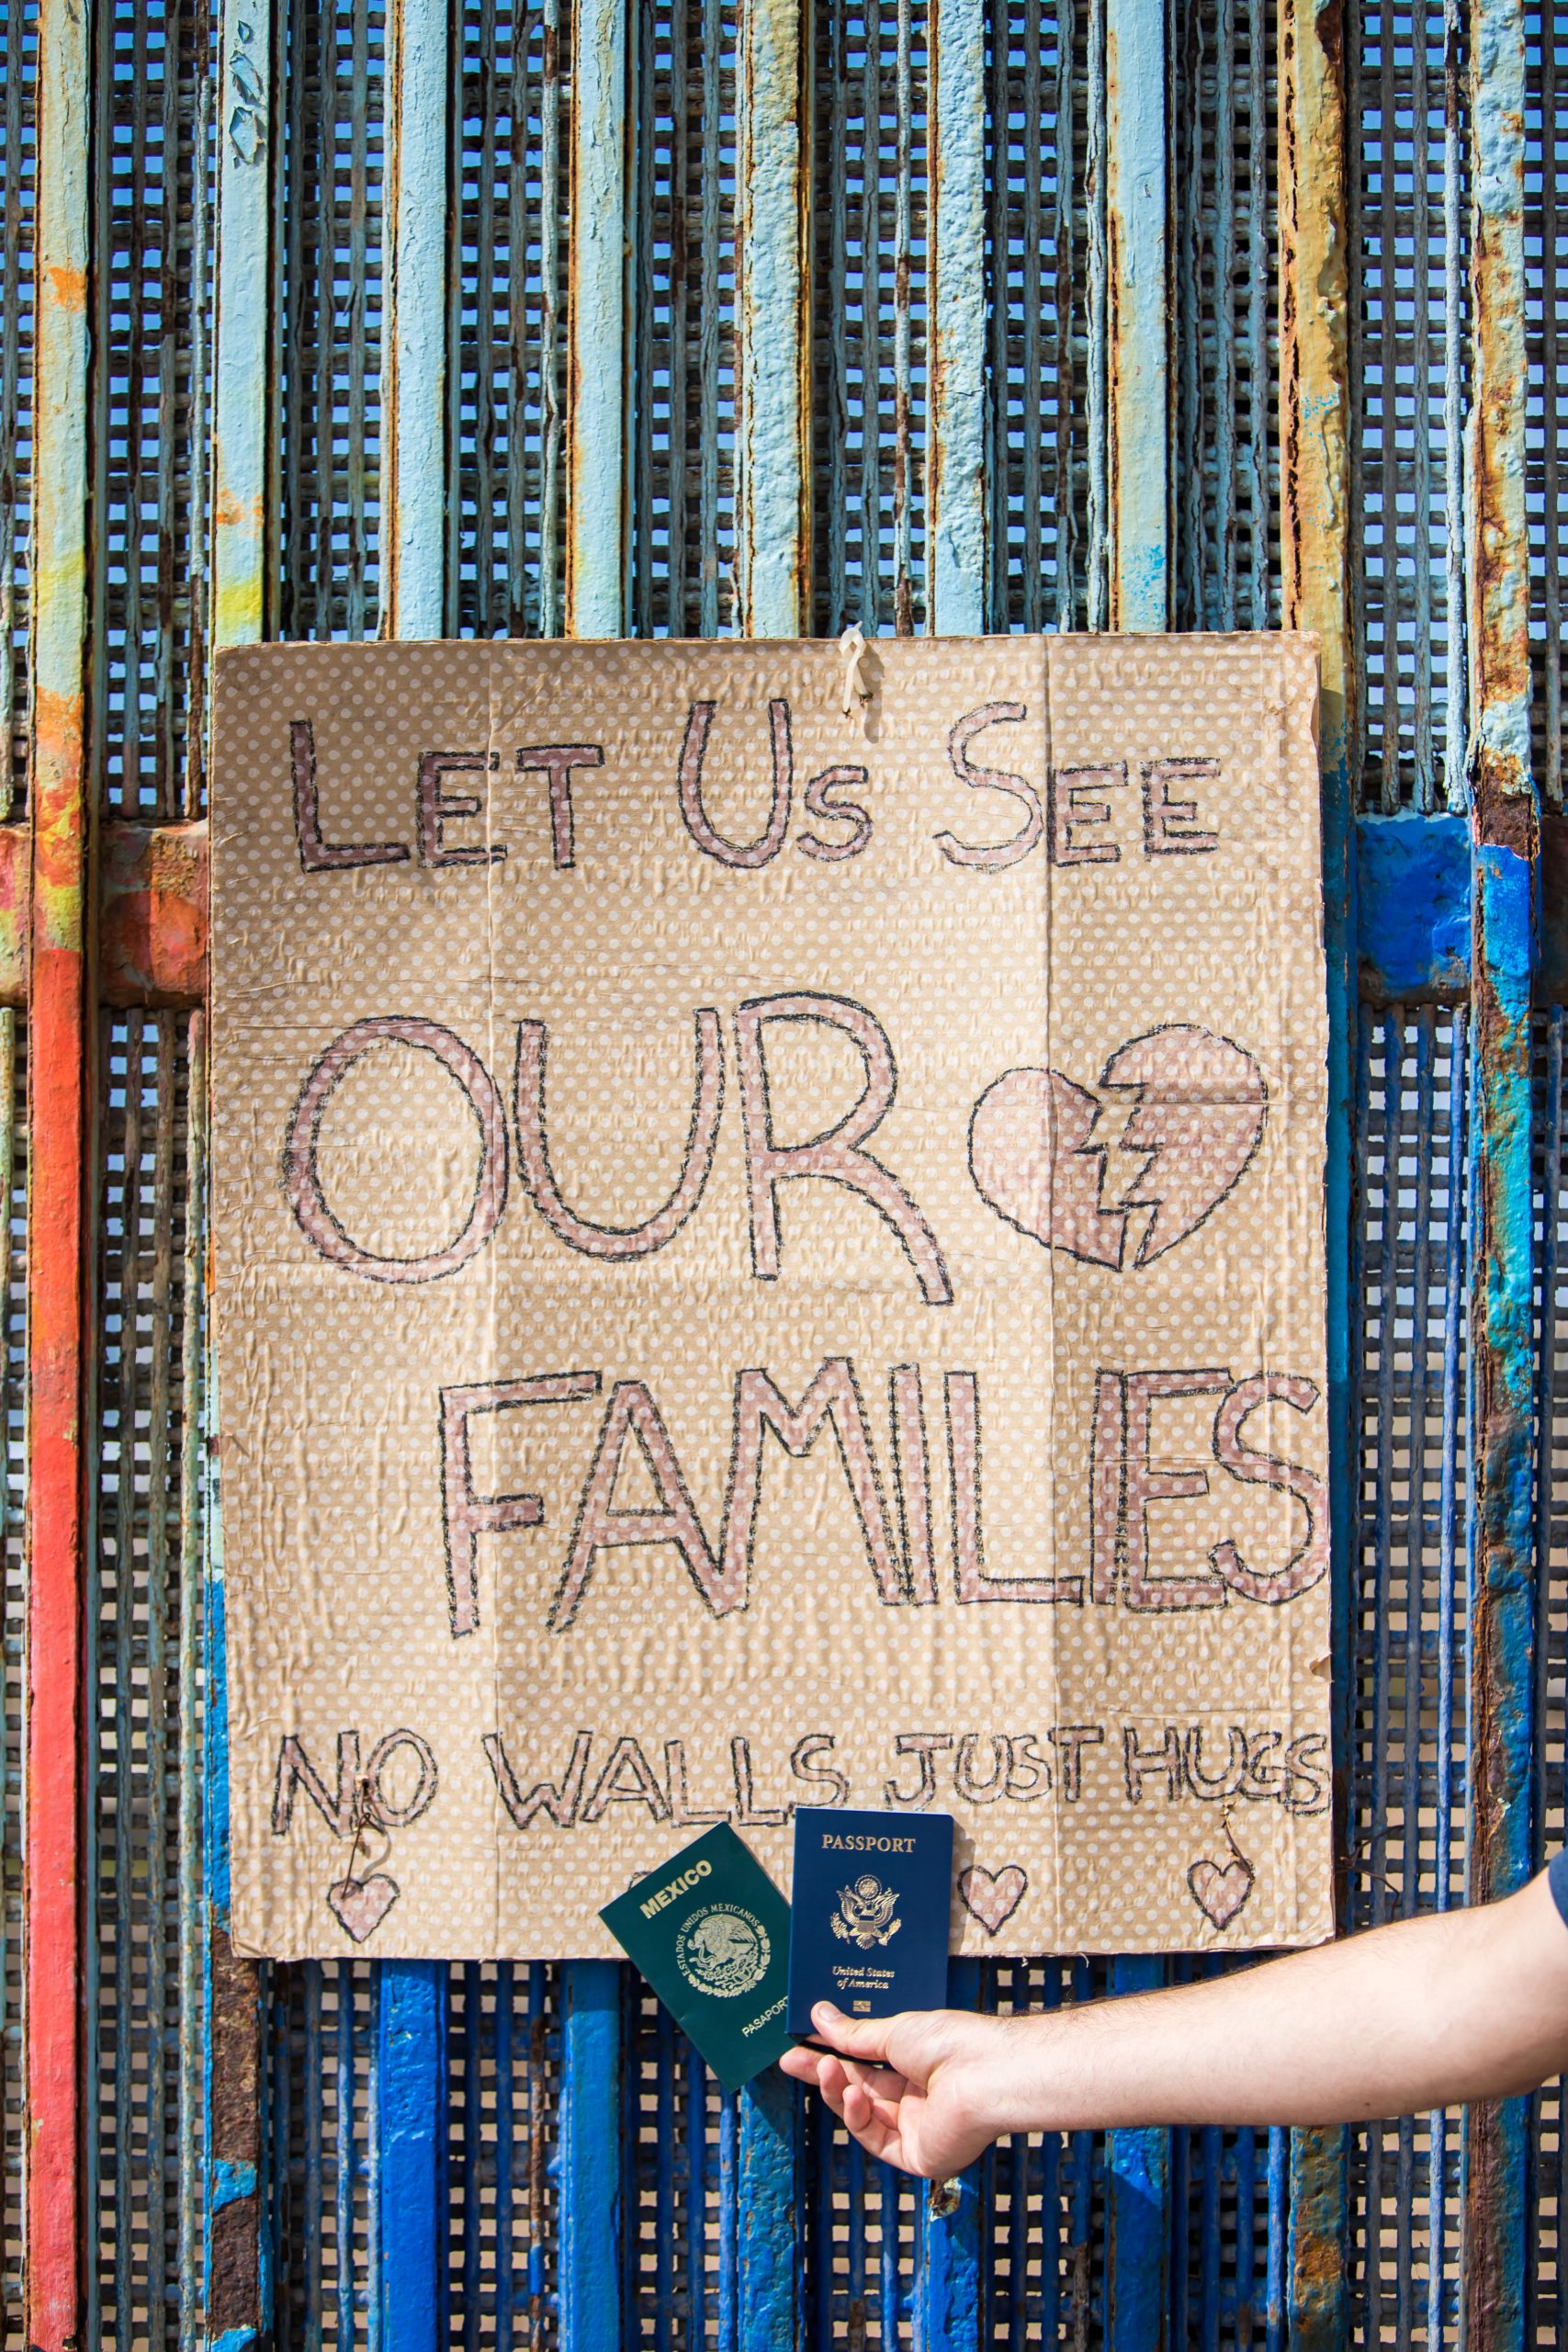 LET US SEE
OUR
FAMILIES
NO WALLS JUST HUGS
MEXICO
ESTADOS UNIDOS MEXICANOS
PASAPORT
PASSPORT
United States
of America